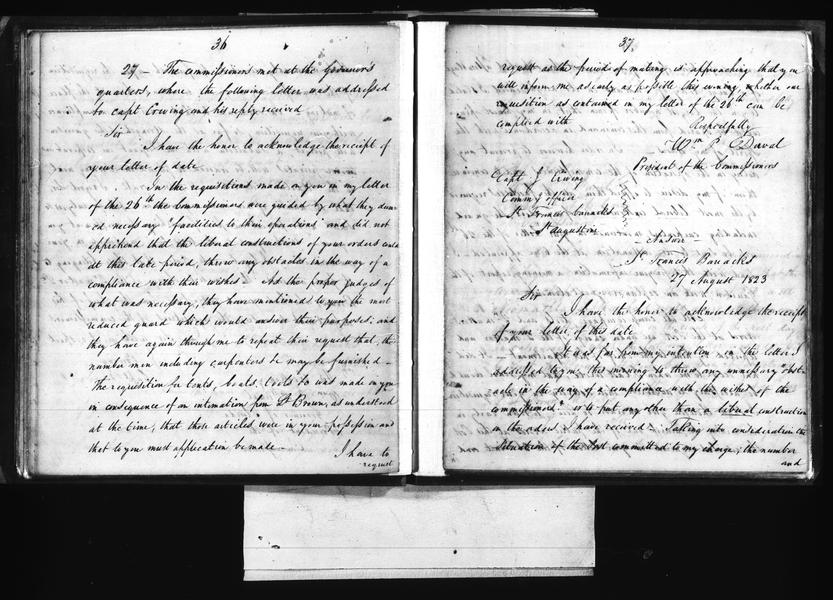 36
27 — The commissioners met at the Governors
quarters, where the following letter was addressed
to Capt Erving and his reply received
Sir
I have the honor to acknowledge the receipt of
your letter of date
In the requisitions made on you in my letter
of the 26th the Commissioners were guided by what they deem
ed necessary "facilities to their operations" and did not
apprehend that the liberal constructions of your orders could
at this late period, throw any obstacles in the way of a
compliance with their wishes — As the proper judges of
what was necessary, they have mentioned to you the most
reduced guard which would answer their purposes; and
they have again through me to repeat their request that, the
number men including carpenters &c may be furnished —
The requisition for tents, boats, &c was made on you
in consequence of an intimation from Lt Brown, as understood
at the time, that those articles were in your possession and
that to you must application be made —
I have to
request
37
request as the periode of making is approaching that you
will inform me as early as possible this evening, whether our
requisition as contained in my letter of the 26th can be
complied with
Respectfully
Wm P Duval
President of the Commissioners
Capt J Erving
Commg officer
St Francis barracks
St augustine
— Answer —
St Francis Barracks
27 August 1823
Sir
I have the honor to acknowledge the receipt
of your letter, of this date
It was far from my intention in the letter I
addressed to you this morning to throw any unnessary obst-
acle in the way of a compliance with the wishes of the
commissioners or to put any other than a liberal construction
on the orders I have received — Taking into consideration the
situation of the Post committed to my charge; the number
and